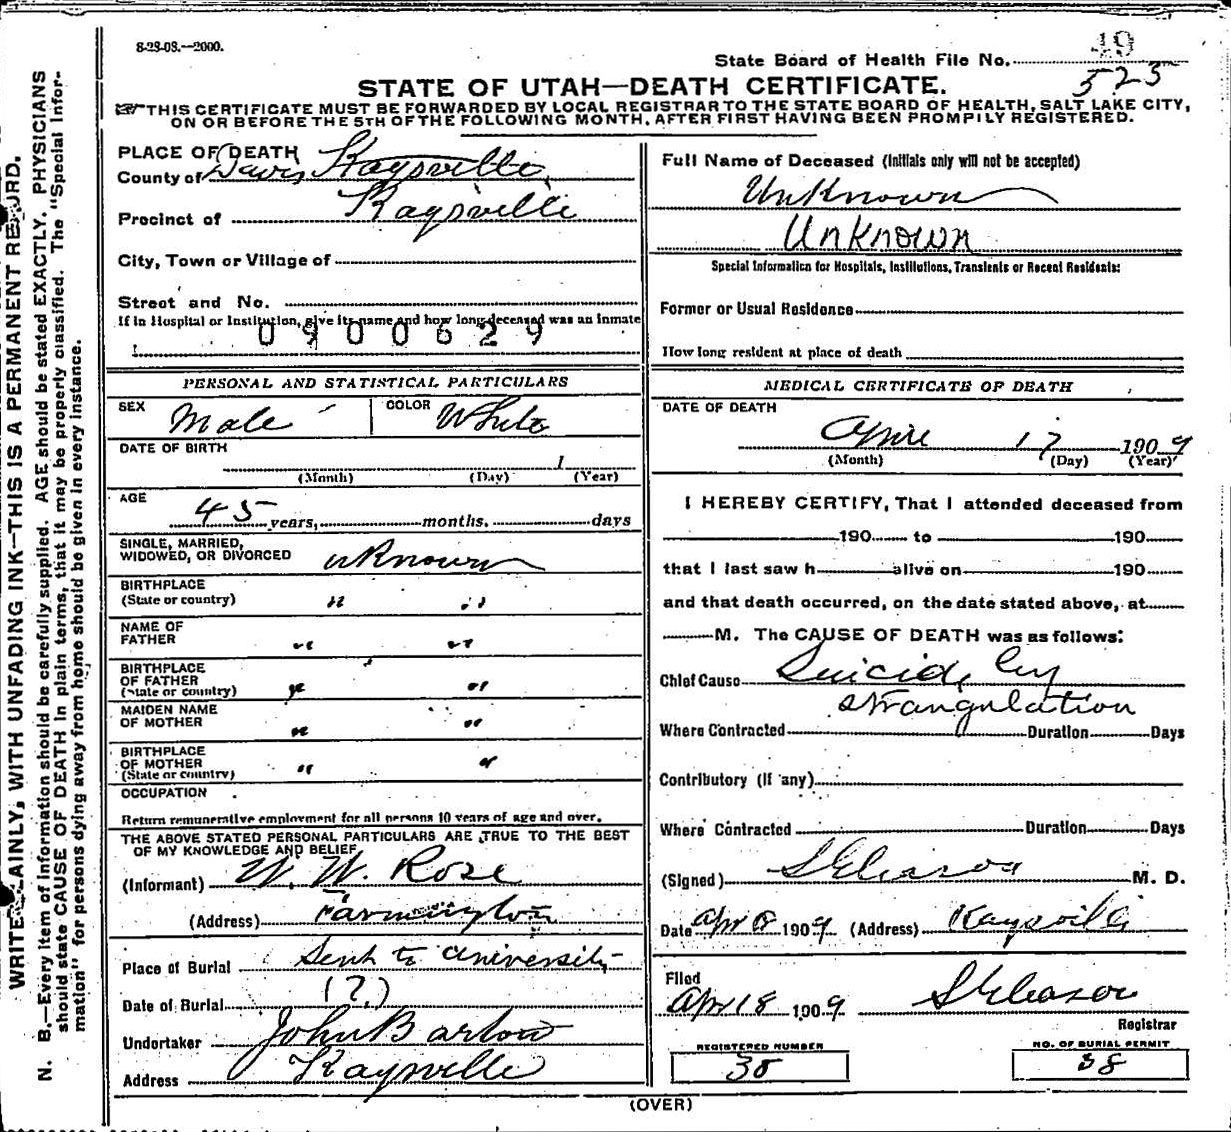 8-23-08.--2000.
State Board of Health File No. 49
523
STATE OF UTAH—DEATH CERTIFICATE.
THIS CERTIFICATE MUST BE FORWARDED BY LOCAL REGISTRAR TO THE STATE BOARD OF HEALTH, SALT LAKE CITY,
ON OR BEFORE THE 5TH OF THE FOLLOWING MONTH, AFTER FIRST HAVING BEEN PROMPTLY REGISTERED.
PLACE OF DEATH
County of Davis Kaysville
Precinct of Kaysville
City, Town or Village of
Street and No.
If in Hospital or Institution, give its name and how long deceased was an inmate
0900629
Full Name of Deceased (Initials only will not be accepted)
Unknown
Unknown
Special Information for Hospitals, Institutions, Transients or Recent Residents:
Former or Usual Residence
How long resident at place of death
PERSONAL AND STATISTICAL PARTICULARS
SEX Male COLOR White
DATE OF BIRTH
1
(Month) (Day) (Year)
AGE
45 years, months. days
SINGLE, MARRIED,
WIDOWED, OR DIVORCED unKnown
BIRTHPLACE
(State or country) " "
NAME OF
FATHER " "
BIRTHPLACE
OF FATHER
(State or country) " "
MAIDEN NAME
OF MOTHER " "
BIRTHPLACE
OF MOTHER
(State or country) " "
OCCUPATION
Return remunerative employment for all persons 10 years of age and over.
THE ABOVE STATED PERSONAL PARTICULARS ARE TRUE TO THE BEST
OF MY KNOWLEDGE AND BELIEF
(Informant) W. W. Rose
(Address) Farmington
Place of Burial Sent to University
Date of Burial (?)
Undertaker John Barton
Address Kaysville
MEDICAL CERTIFICATE OF DEATH
DATE OF DEATH
April 17 1909
(Month) (Day) (Year)
I HEREBY CERTIFY, That I attended deceased from
190 to 190
that I last saw h alive on 190
and that death occurred, on the date stated above, at
M. The CAUSE OF DEATH was as follows:
Chief Cause Suicide by
strangulation
Where Contracted Duration Days
Contributory (If any)
Where Contracted Duration Days
(Signed) S Gleason M. D.
Date Apr 8 1909 (Address) Kaysville
Filed
Apr 18 1909 S Gleason
Registrar
REGISTERED NUMBER
38
NO. OF BURIAL PERMIT
38
(OVER)
WRITE PLAINLY, WITH UNFADING INK—THIS IS A PERMANENT RECORD.
N. B.—Every item of information should be carefully supplied. AGE should be stated EXACTLY. PHYSICIANS
should state CAUSE OF DEATH in plain terms, that it may be properly classified. The "Special Infor-
mation" for persons dying away from home should be given in every instance.